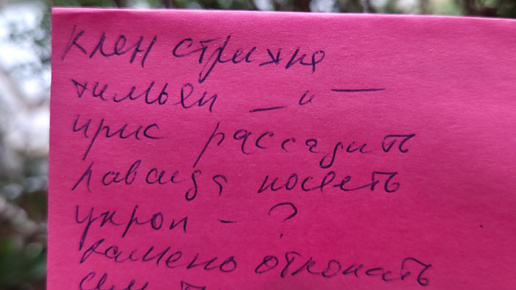 клен стрижка
тимьян — " —
ирис рассадить
лаванда посеять
укроп - ?
откопать